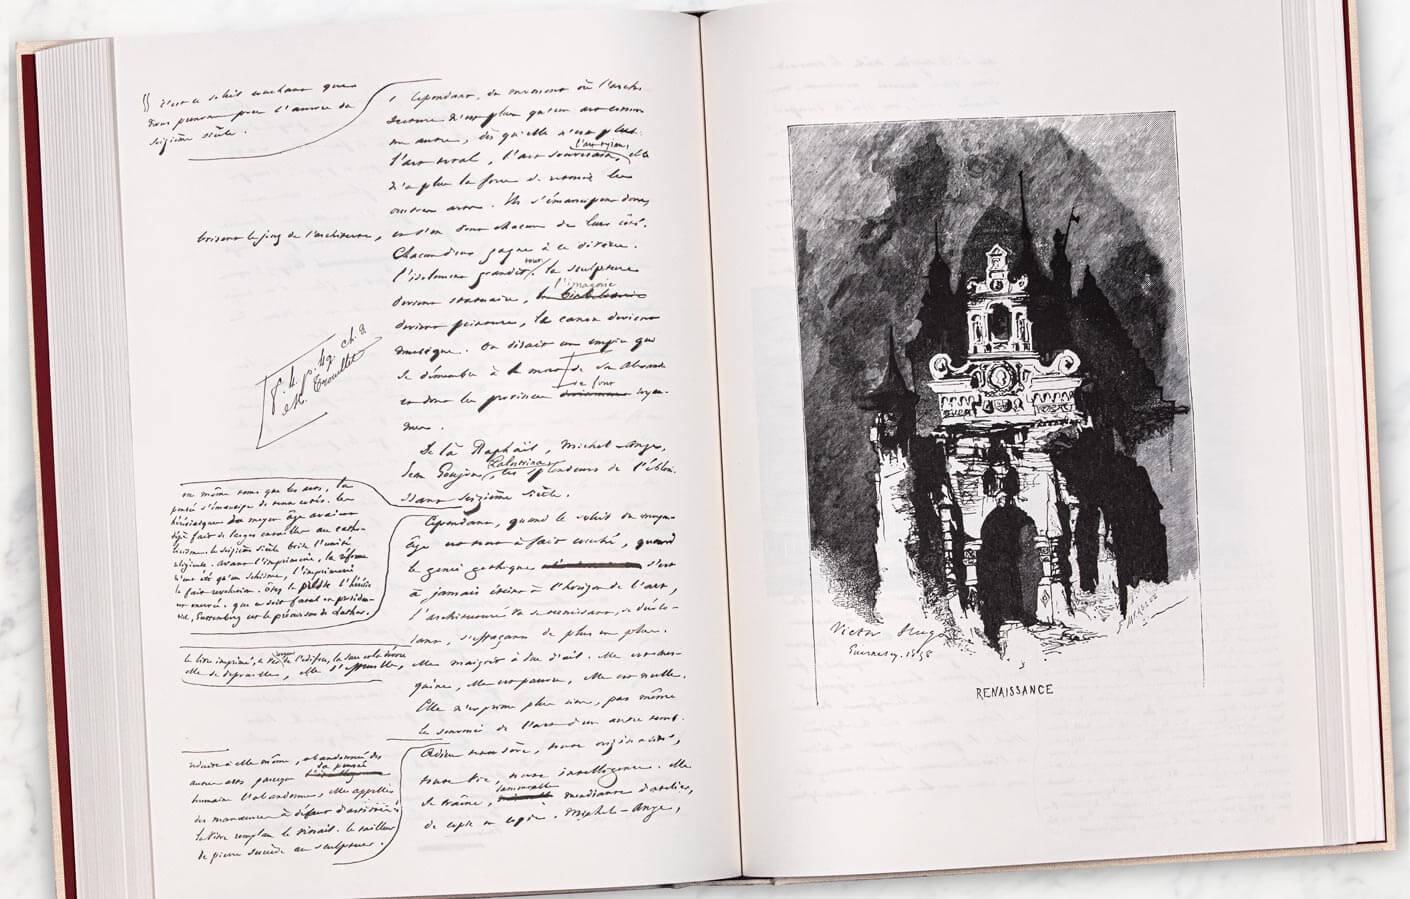 c'est ce soleil couchant que
nous prenons pour l'aurore du
seizième siècle.
Cependant, du moment où l'archi-
tecture n'est plus qu'un art comme
un autre, dès qu'elle n'est plus
l'art total, l'art souverain, l'art tyran, elle
n'a plus la force de retenir les
autres arts. Ils s'émancipent donc,
brisent le joug de l'architecte,
et s'en vont chacun de leur côté.
Chacun d'eux gagne à ce divorce.
l'isolement grandit tout. la sculpture
devient statuaire, l'imagerie
devient peinture, le canon devient
musique. On dirait un empire qui
se démembre à la mort de son Alexandre
et dont les provinces se font royau-
mes.
De là Raphaël, Michel-Ange,
Jean Goujon, Palestrina, ces splendeurs de l'éblouis-
sant seizième siècle.
en même temps que les arts, la
pensée s'émancipe de tous côtés. les
hérésiarques du moyen âge avaient
déjà fait de larges entailles au catho-
licisme. le seizième siècle brise l'unité
religieuse. avant l'imprimerie, la réforme
n'eût été qu'un schisme, l'imprimerie
la fait révolution. ôtez la presse, l'hérésie
est énervée. que ce soit fatal ou providen-
tiel, Gutenberg est le précurseur de Luther.
Cependant, quand le soleil du moyen-
âge est tout à fait couché, quand
le génie gothique s'est
à jamais éteint à l'horizon de l'art,
l'architecture va se ternissant, se décolo-
rant, s'effaçant de plus en plus.
le livre imprimé, ce ver rongeur de l'édifice, la suce et la dévore
elle se dépouille, elle s'effeuille,
elle maigrit à vue d'œil. Elle est mes-
quine, elle est pauvre, elle est nulle.
Elle n'exprime plus rien, pas même
le souvenir de l'art d'un autre temps.
réduite à elle même, abandonnée des
autres arts parce que la pensée
humaine l'abandonne, elle appelle
des manœuvres à défaut d'artistes.
la vitre remplace le vitrail. le tailleur
de pierre succède au sculpteur.
Adieu toute sève, toute originalité,
toute vie, toute intelligence. Elle
se traîne, lamentable mendiante d'atelier,
de copie en copie. Michel-Ange,
Victor Hugo
Guernesey. 1858
RENAISSANCE